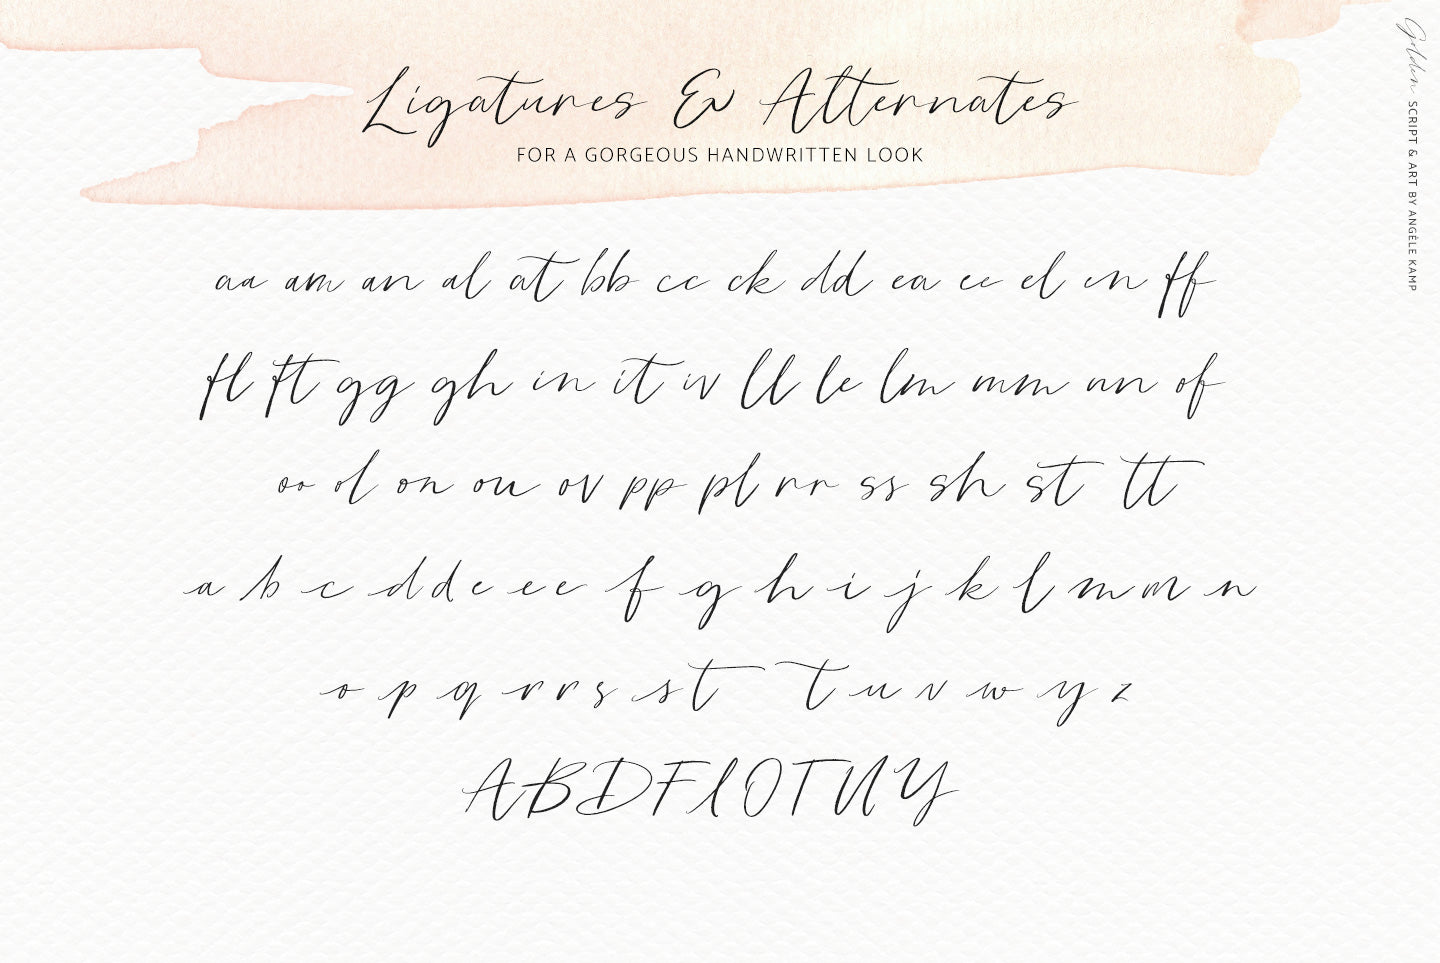 Ligatures & Alternates
FOR A GORGEOUS HANDWRITTEN LOOK
Golden SCRIPT & ART BY ANGÈLE KAMP
aa am an al at bb cc ck dd ea ee el en ff
fl ft gg gh in it iv ll le lm mm nn of
oo ol on ou ov pp pl rr ss sh st tt
a b c d d e e e f g h i j k l m m n
o p q r r s s t t u v w y z
A B D F I O T U Y